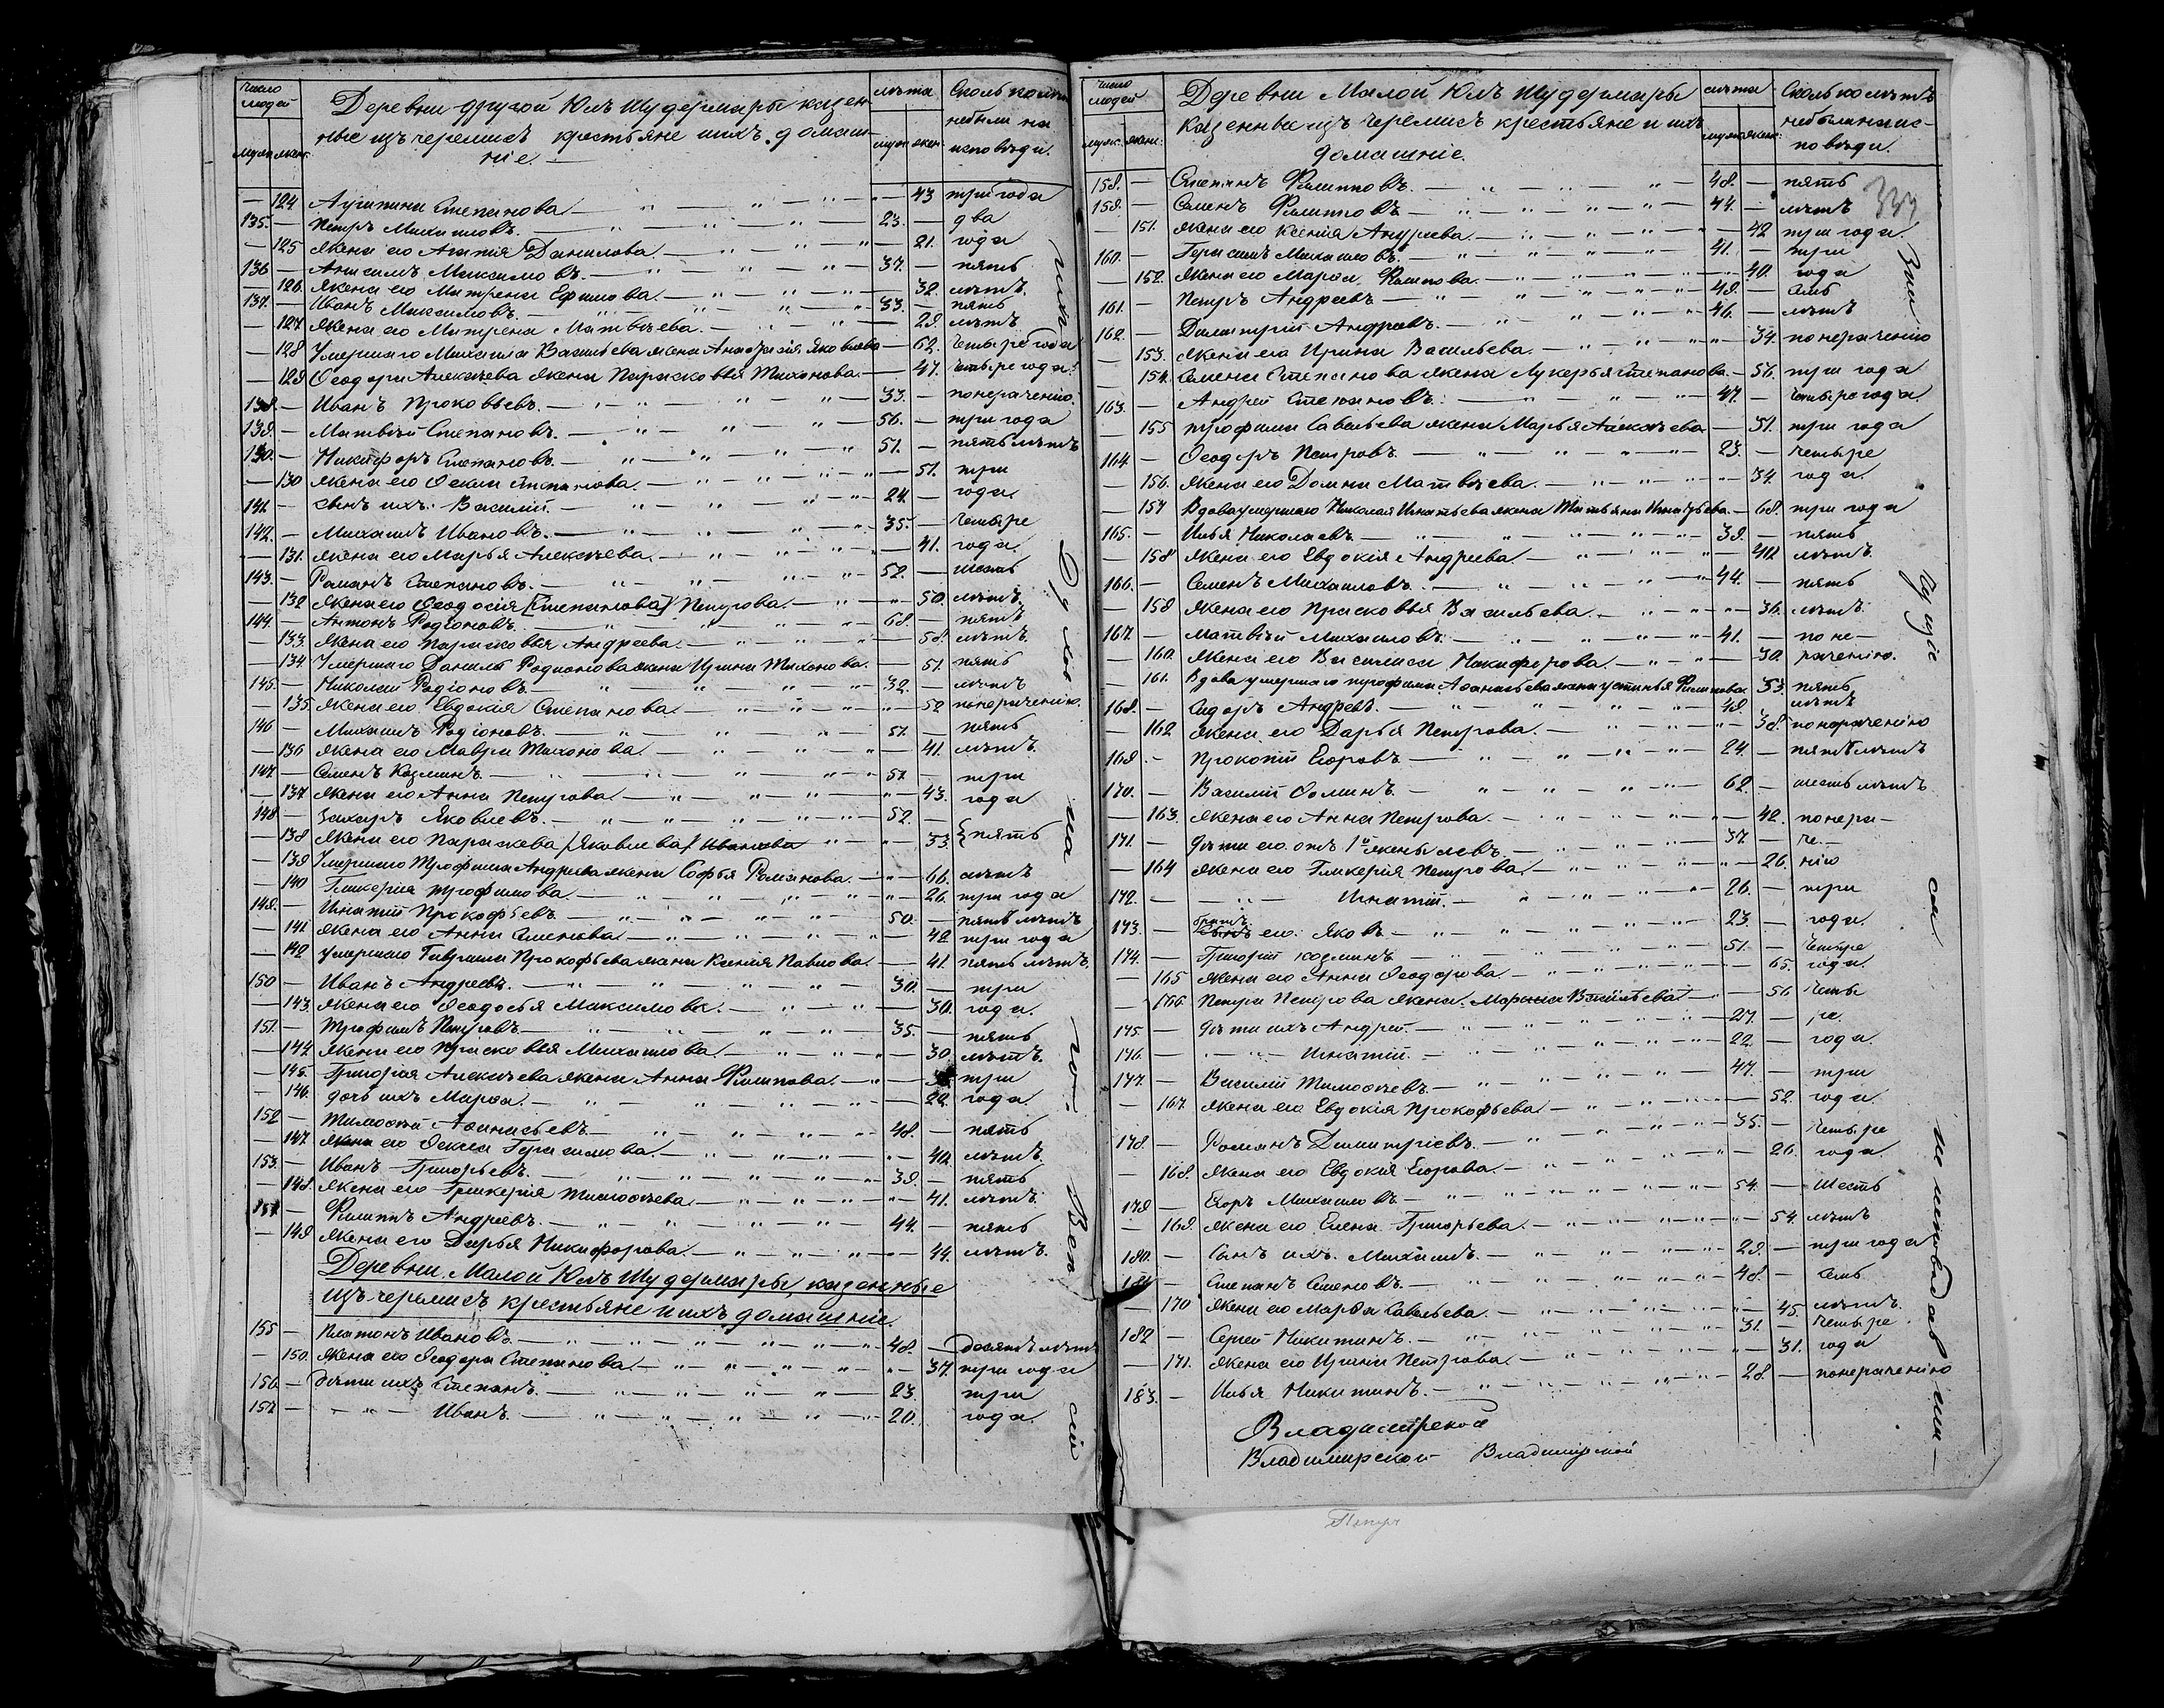 Число людей
муж. жен.
Деревни другой Юлъ Шудермары казен-
ные изъ черемисъ крестьяне ихъ домаш-
ніе.
лѣта
муж. жен.
Сколько лѣтъ
небыли на
исповѣди.
— 124 Агрипина Степанова — 43 три года
135. — Петръ Михаиловъ. 23. — два
— 125 Жена его Агапія Данилова. — 21. года
136 — Анисимъ Максимовъ. 37. — пять
— 126. Жена его Матрена Ефимова. — 32. лѣтъ.
137. — Иванъ Максимовъ. 33. — пять
— 127 Жена его Матрена Матвѣева. — 29. лѣтъ
— 128 Умершаго Михаила Васильева жена Анастасія Яковлева — 62. четыре года
— 129 Ѳеодора Алексѣева жена Парасковья Тихонова. — 47. четыре года.
138. — Иванъ Прокопьевъ. 33. — понераченію.
139. — Матвѣй Степановъ. 56. — три года
140. — Никифоръ Степановъ. 51. — пять лѣтъ
— 130 Жена его Ѳекла Степанова. — 51. три
141 — сынъ ихъ: Василій. 24. — года.
142. — Михаилъ Ивановъ. 35. — четыре
— 131. Жена его Марья Алексѣева. — 41. года.
143. — Романъ Степановъ. 52. — шесть
— 132 Жена его Ѳеодосія [Степанова] Петрова. — 50. лѣтъ.
144. — Антонъ Родіоновъ. 68. — пять
— 133. Жена его Парасковья Андреева. — 58. лѣтъ.
— 134. Умершаго Данилы Родионова жена Ирина Тихонова. — 51. пять
145. — Николай Родіоновъ. 32. — лѣтъ
— 135 Жена его Евдокія Степанова. — 52 понераченію.
146 — Михаилъ Родіоновъ. 51. — пять
— 136 Жена его Мавра Тихонова. — 41. лѣтъ.
147. — Семенъ Козминъ. 51. — три
— 137 Жена его Анна Петрова. — 43. года
148 — Захаръ Яковлевъ. 52. —
— 138 Жена его Параскева /Яковлева/ Иванова — 53. } пять
— 139 Умершаго Трофима Андреева жена Софья Романова. — 66. лѣтъ
— 140 Гликерия Трофимова. — 26. три года
149. — Игнатій Прокофьевъ. 50. — пять лѣтъ
— 141. Жена его Анна Семенова — 42. три года
— 142 Умершаго Гаврила Прокофьева жена Ксения Павлова. — 41. пять лѣтъ.
150 — Иванъ Андреевъ. 30. — три
— 143. Жена его Ѳеодосья Максимова. — 30. года.
151. — Трофимъ Петровъ. 35. — пять
— 144. Жена его Прасковья Михаилова. — 30. лѣтъ.
— 145. Григория Алексѣева жена Анна Филипова. — три
— 146. дочь ихъ Марѳа. — 22. года.
152 — Тимоѳей Аѳанасьевъ. 48. — пять
— 147. Жена его Ѳекла Герасимова. — 40. лѣтъ.
153. — Иванъ Григорьевъ. 39. — пять
— 148. Жена его Гликерія Тимоѳѣева. — 41. лѣтъ.
154 — Филиппъ Андреевъ. 44. — пять
— 149 Жена его Дарья Никифорова. — 44. лѣтъ.
Деревни Малой Юлъ Шудермары, казенные
изъ черемисъ крестьяне и ихъ домашніе.
155 — Платонъ Ивановъ. 48. — десять лѣтъ
— 150. Жена его Ѳеодора Степанова. — 37. три года
156. — Дѣти ихъ Степанъ. 23. три
157. — Иванъ. 20. года.
Духов
на
Число людей
муж. жен.
Деревни Малой Юлъ Шудермары
казенные изъ черемисъ крестьяне и ихъ
домашніе.
лѣта
муж. жен.
Сколько лѣтъ
небыли на ис-
повѣди.
158. — Степанъ Филипповъ. 48. — пять
159. — Семенъ Филипповъ. 44. — лѣтъ
— 151. Жена его Ксенія Андреева. — 42 три года.
160. — Герасимъ Михаиловъ. 41. три
— 152. Жена его Марѳа Филипова. — 40. года
161. — Петръ Андреевъ 49. — семь
162. — Димитрій Андреевъ. 46. — лѣтъ
— 153. Жена его Ирина Васильева. — 34. понераченію
— 154. Семена Степанова жена Лукерья Степанова. — 56. три года
163. — Андрей Степановъ. 47. — четыре года
— 155 Трофима Савельева жена Марья Алексѣева — 51. три года
164. — Ѳеодоръ Петровъ. 23. — четыре
— 156. Жена его Домна Матвѣева. — 34. года.
— 157 Вдова умершаго Николая Игнатьева жена Татьяна Игнатьева. — 68. три года
165. — Илья Николаевъ. 39. — пять
— 158 Жена его Евдокія Андреева. — лѣтъ.
166. — Семенъ Михаиловъ. 44. — пять
— 159 Жена его Прасковья Васильева. — 36. лѣтъ.
167. — Матвѣй Михаиловъ. 41. — по не-
— 160. Жена его Василиса Никифорова. — 30. раченію.
— 161. Вдова умершаго Трофима Аѳанасьева жена Устинья Филипова. 53. пять
168. — Сидоръ Андреевъ. 49. лѣтъ
— 162 Жена его Дарья Петрова. — 38. понераченію
169. — Прокопій Егоровъ 24. — пять лѣтъ
170. — Василій Ѳоминъ. 62. — шесть лѣтъ.
— 163. Жена его Анна Петрова. — 42. понера-
171. — Дѣти его отъ 1й жены Левъ. 37. — че-
— 164 Жена его Гликерія Петрова. — 26. нію
172. — Игнатій. 26. — три
173. — братъ его: Яковъ 23. — года.
174. — Григорій Козминъ 51. — четыре
— 165 Жена его Анна Ѳеодорова. — 65. года.
— 166. Петра Петрова жена Васильева — 56 четы
175. — Дѣти ихъ Андрей. 27. — ре.
176. — Игнатій. 22. — года.
177. — Василій Тимоѳѣевъ 47. — три
— 167. Жена его Евдокія Прокофьева. — 52. года
178. — Романъ Димитріевъ. 35. — четыре
— 168. Жена его Евдокія Егорова. — 26. года
179 — Егоръ Михаиловъ 54. — шесть
— 169. Жена его Елена Григорьева. — 54. лѣтъ
180. — Сынъ ихъ. Михаилъ. 29. — три года
181. — Степанъ Семеновъ. 48. — семь
— 170 Жена его Марья Савельева. — 45. лѣтъ.
182 — Сергей Никитинъ. 31. — четыре
— 171. Жена его Ирина Петрова. — 31. года
183. — Илья Никитинъ. 28. — понераченію
Владимирской
Владимирской Владимирской
Петръ